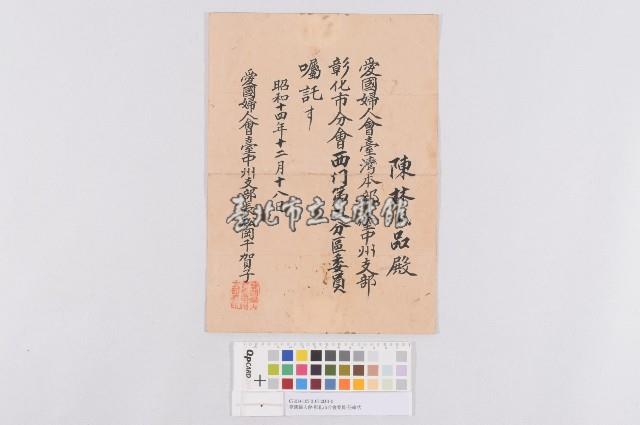 陳林品殿
愛國婦人會臺灣本部臺中州支部
彰化市分會西门第分區委員
囑託ス
昭和十四年十二月十八日
愛國婦人會臺中州支部長岡千賀子
臺北市立文獻館
QPCARD